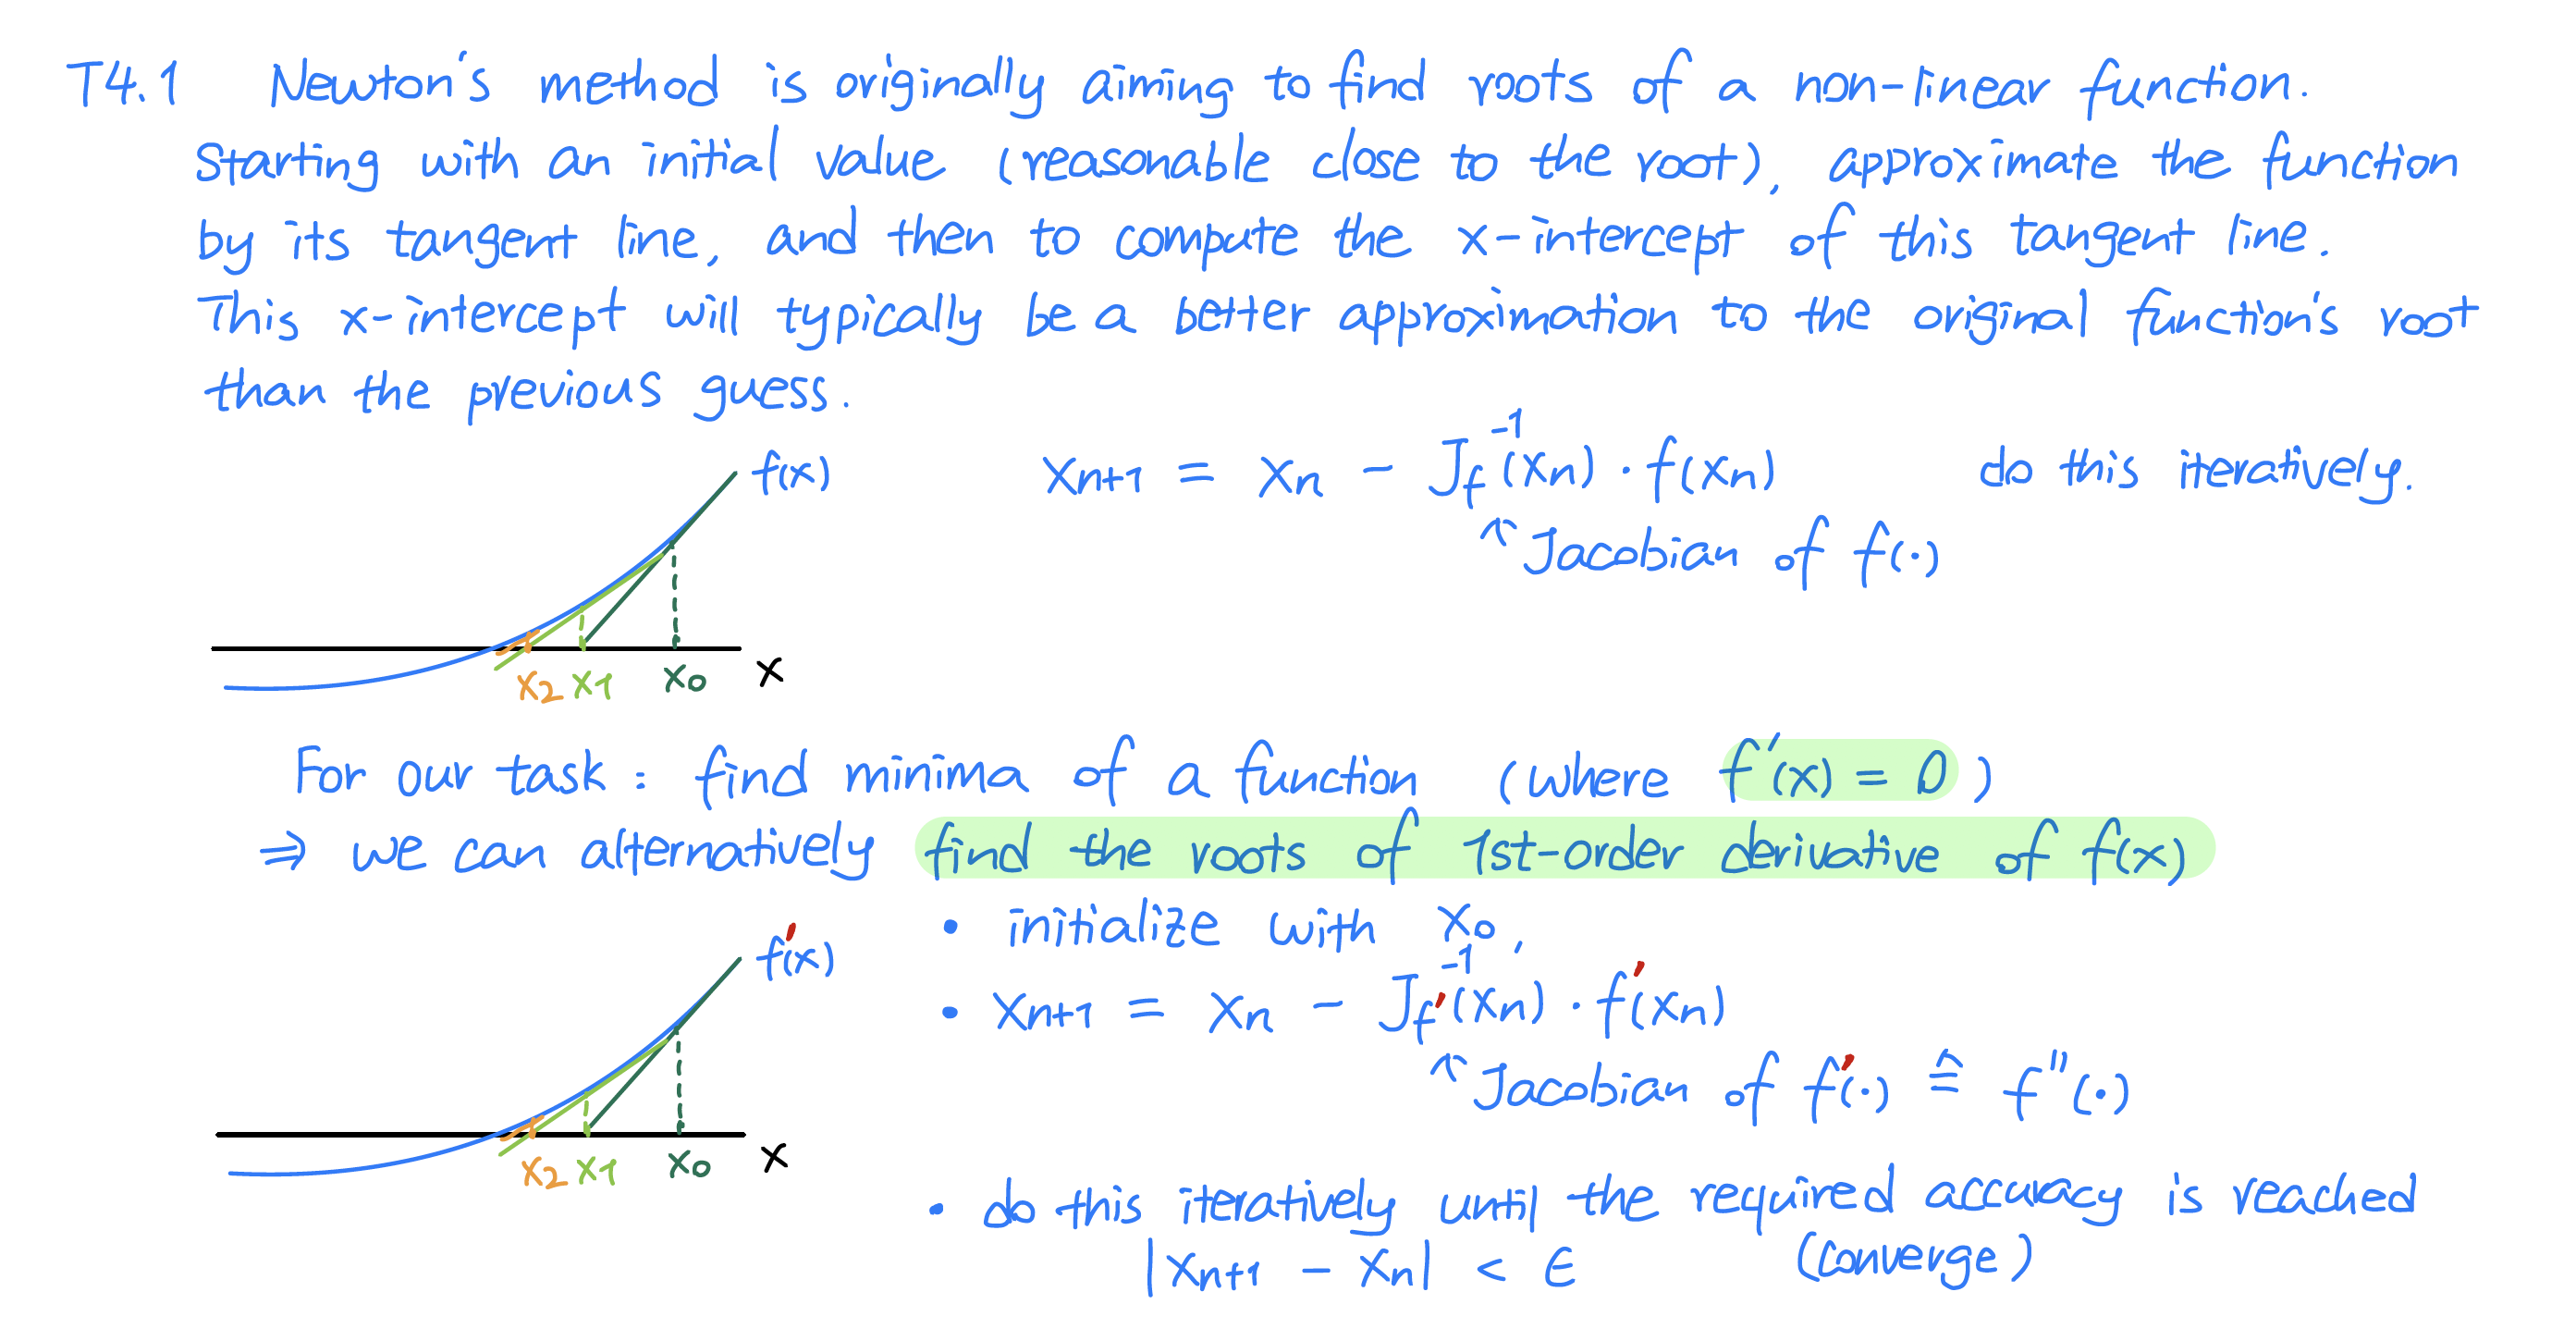 T4.1 Newton's method is originally aiming to find roots of a non-linear function.
Starting with an initial value (reasonable close to the root), approximate the function
by its tangent line, and then to compute the x-intercept of this tangent line.
This x-intercept will typically be a better approximation to the original function's root
than the previous guess.
f(x)
x₂ x₁ x₀ x
xₙ₊₁ = xₙ - J_f⁻¹(xₙ) · f(xₙ) do this iteratively.
↑ Jacobian of f(·)
For our task : find minima of a function (where f'(x) = 0)
⇒ we can alternatively find the roots of 1st-order derivative of f(x)
f'(x)
x₂ x₁ x₀ x
• initialize with x₀,
• xₙ₊₁ = xₙ - J_f'⁻¹(xₙ) · f'(xₙ)
↑ Jacobian of f'(·) ≙ f''(·)
• do this iteratively until the required accuracy is reached
|xₙ₊₁ - xₙ| < ϵ (converge)